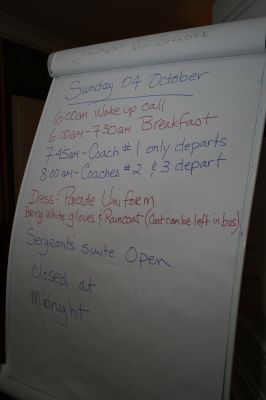 Sunday 04 October
6:00am Wake up call
6:00am - 7:30am Breakfast
7:45am - Coach #1 only departs
8:00am - Coaches #2 & 3 depart
Dress: Parade Uniform
Bring White gloves & Raincoat (Coat can be left in bus)
Sergeants suite Open
closed at
Midnight